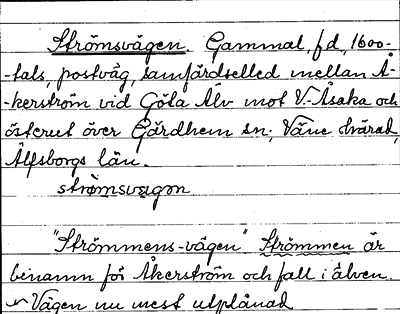 Strömsvägen. Gammal, f d, 1600-
-tals, postväg, samfärdselled mellan Å-
-kerström vid Göta Älv mot V.-Åsaka och
österut över Gärdhem sn; Väne härad,
Älfsborgs län.
strömsvægən
"Strömmens-vägen" Strömmen är
binamn för Åkerström och fall i älven.
Vägen nu mest utplånad